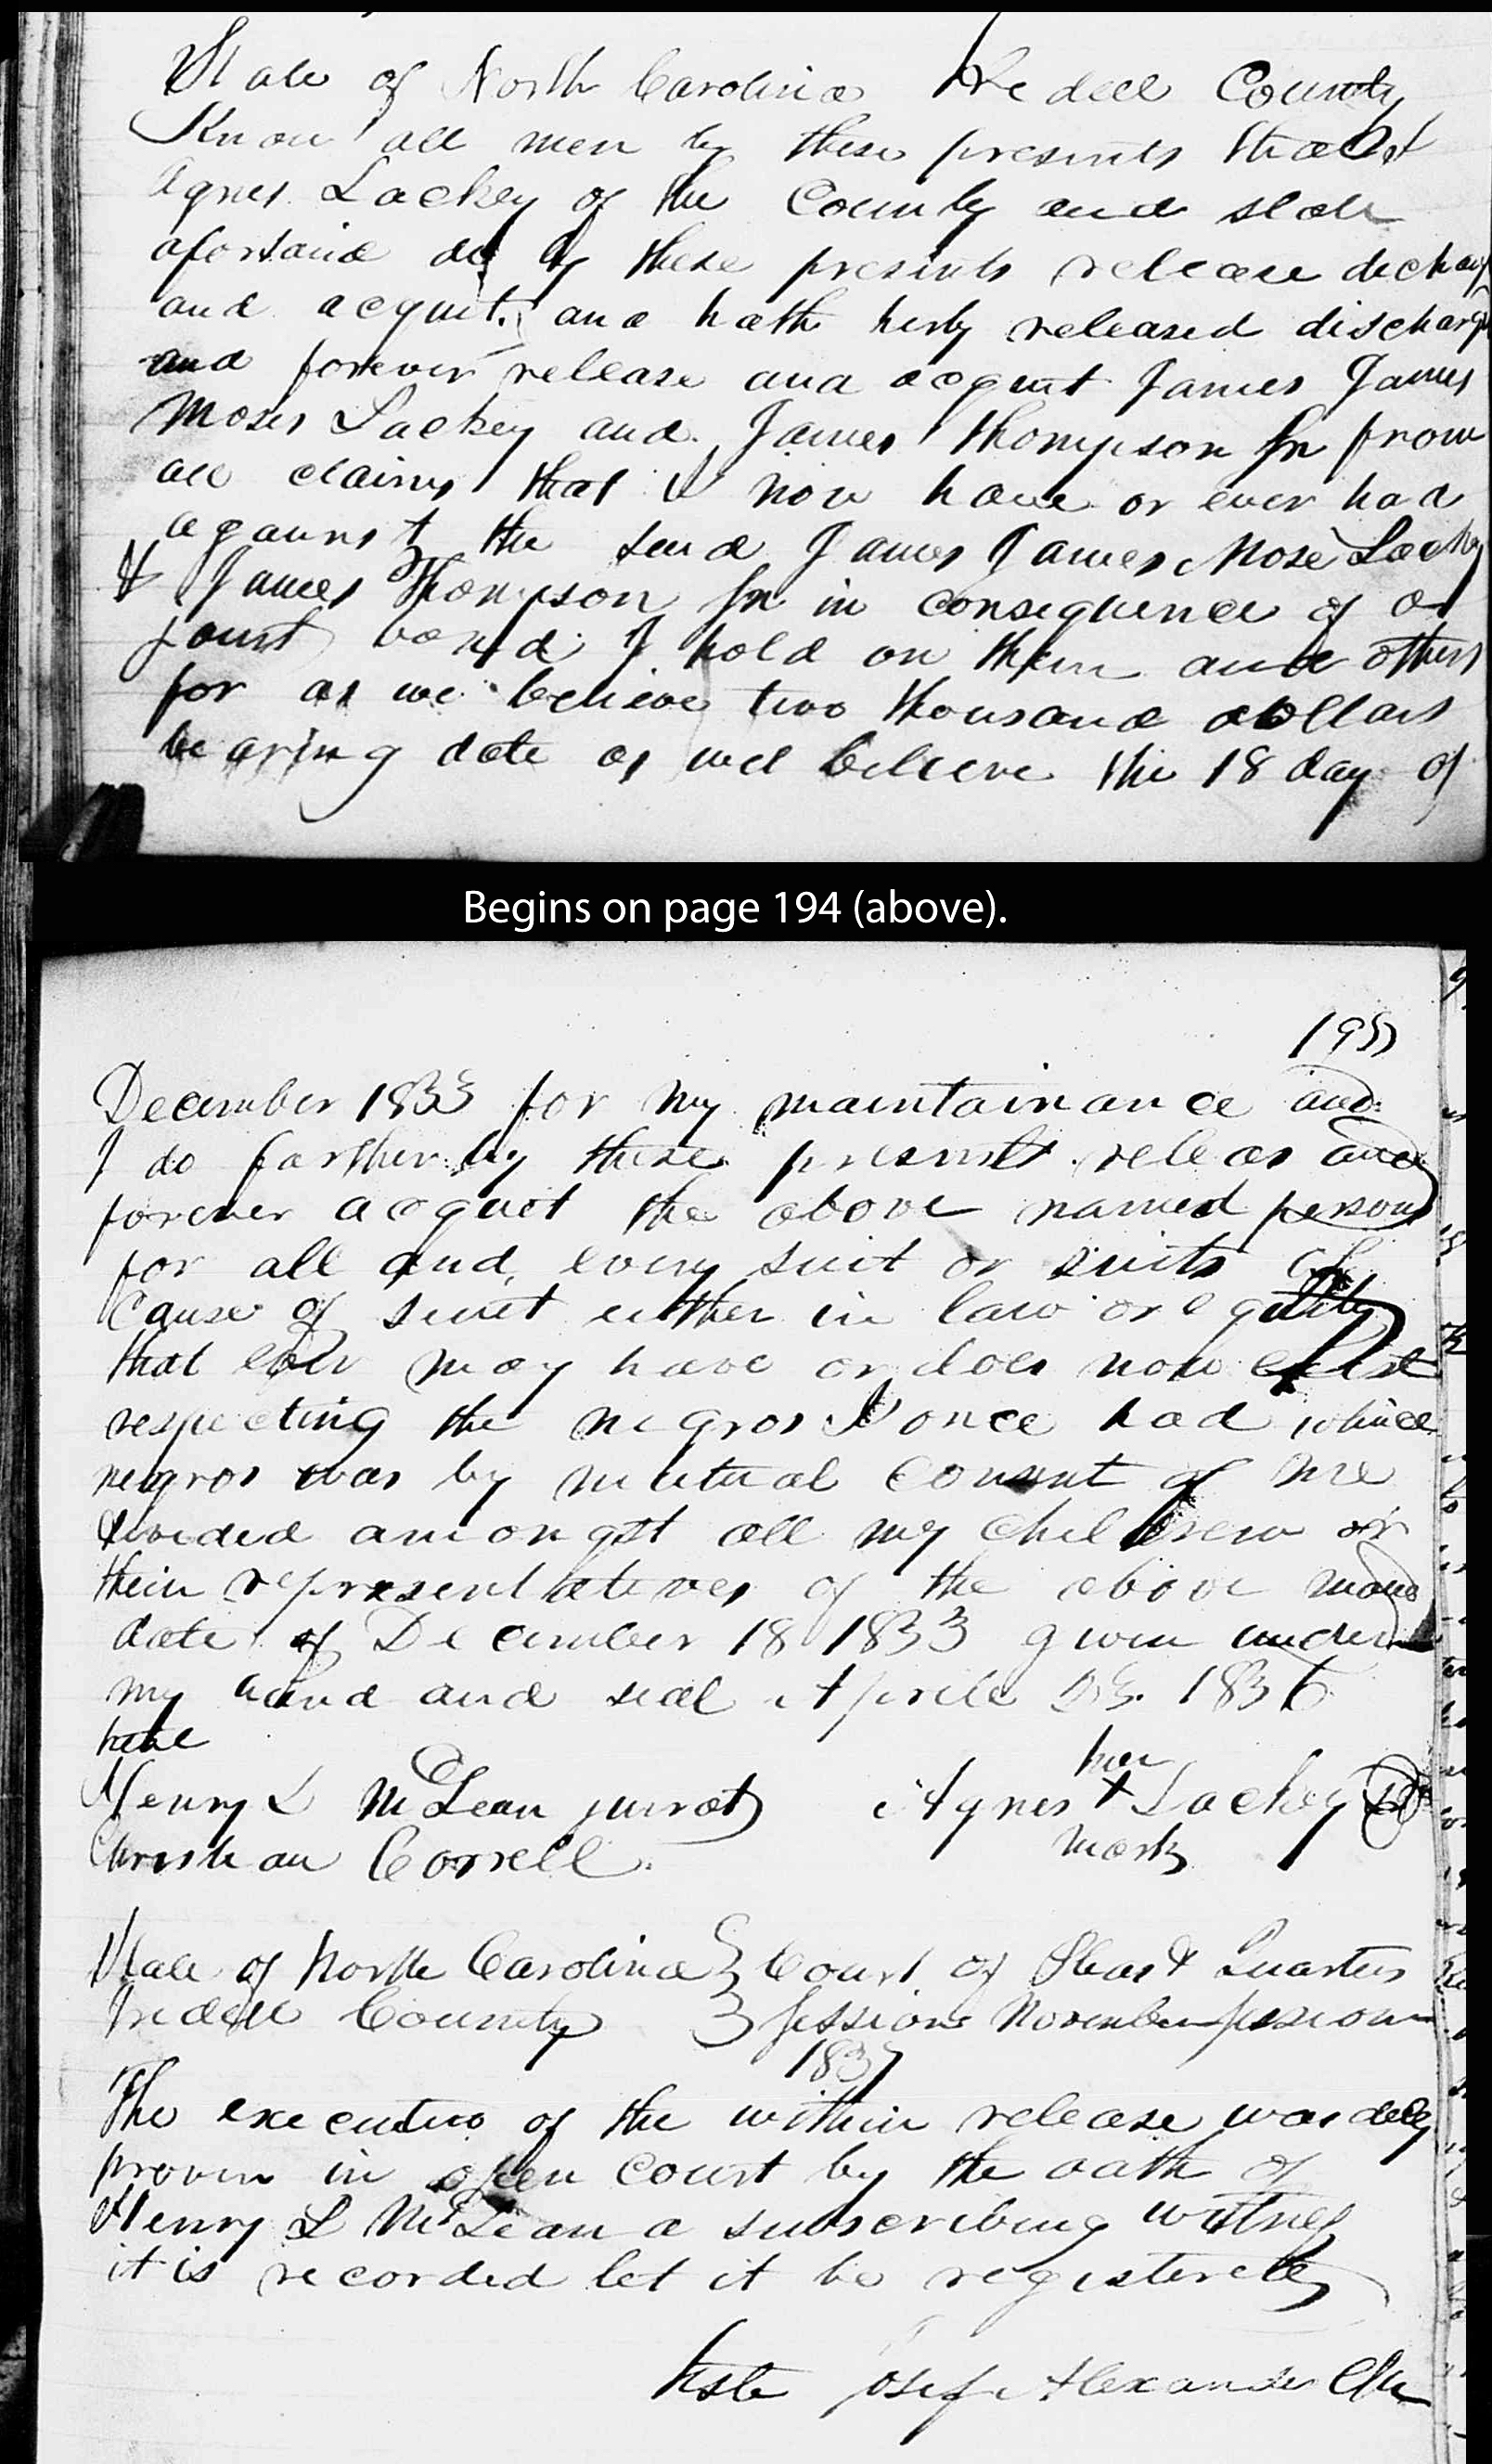 State of North Carolina Iredell County
Know all men by these presents that I
Agnes Lackey of the County and state
aforsaid do by these presents release dischag
and acquit. and hath herby released discharg
and forever release and acquit James James
Moses Lackey and James Thompson Jn from
all claims that I now have or ever had
against the said James James Mose Lackey
& James Thompson Jn in consequence of a
joint bond I hold on them and others
for as we believe two thousand dollars
bearing date as wel believe the 18 day of
Begins on page 194 (above).
195
December 1833 for my maintainance and
I do farther by these presents releas and
forever acquit the above named persons
for all and every suit or suits or
cause of suit either in law or equity
that ever may have or does now exist
respecting the negros I once had which
negros was by mutual consent of me
divided amongst all my children or
their representatives of the above
date of December 18 1833 given under
my hand and seal Aprile 1836
teste
her
Henry L McLean jurat Agnes X Lackey
Christian Correll. mark
State of North Carolina } Court of Pleas & Quarter
Iredell County } Sessions November session
1837
The execution of the within release was duly
proven in open court by the oath of
Henry L McLean a subscribing witness
it is recorded let it be registered
teste Josep Alexander Clk